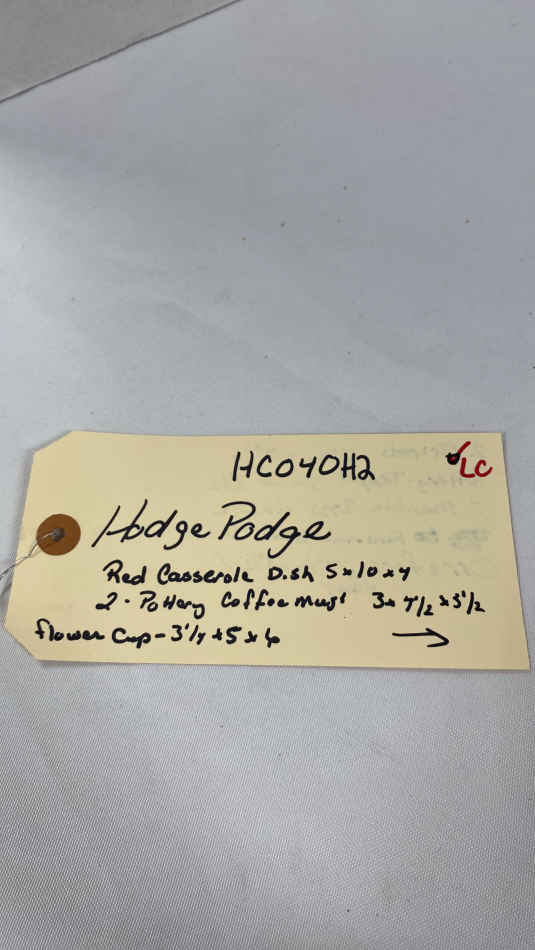 HC040H2 LC
Hodge Podge
Red Casserole Dish 5x10x4
2 - Pottery Coffee Mugs 3x 4 1/2 x 3 1/2
flower Cup - 3 1/4 x 5 x 6 →